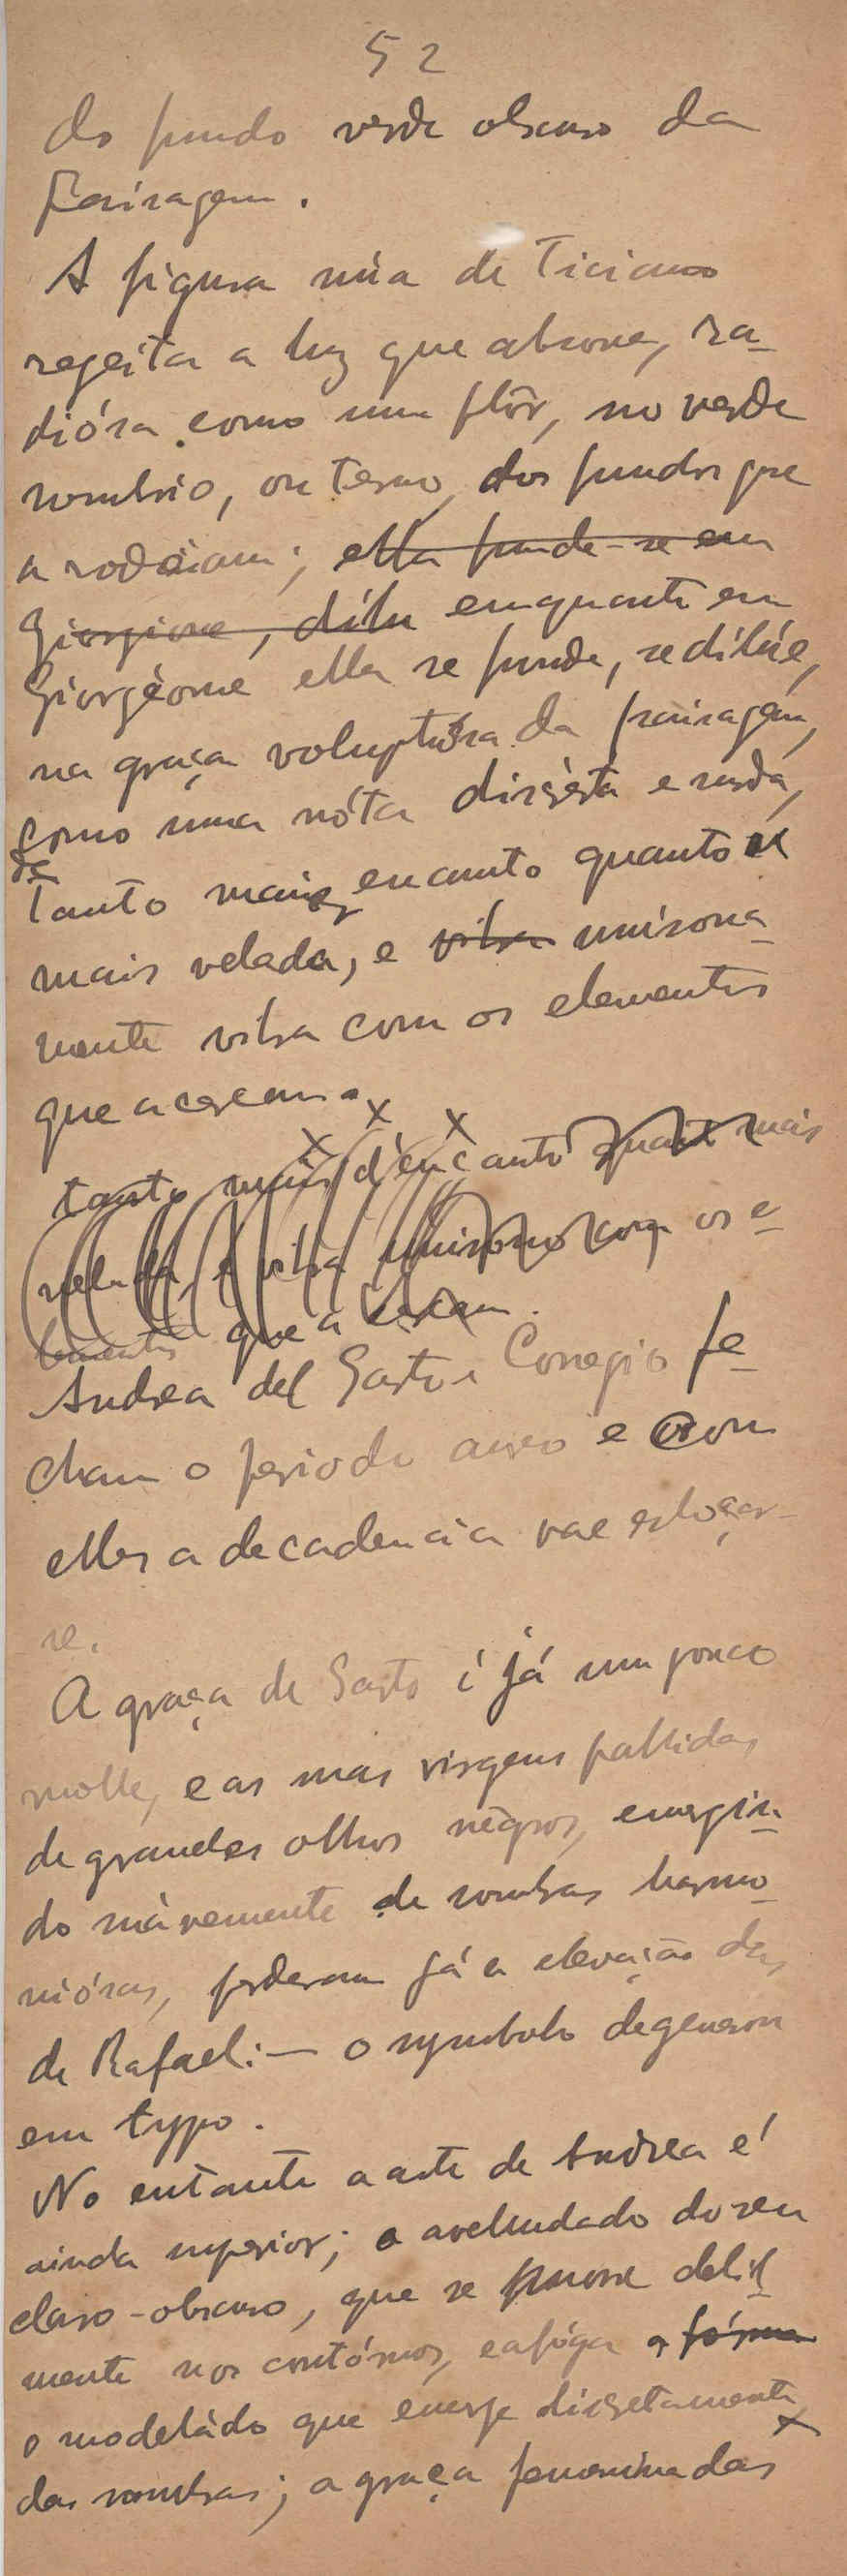 52
do fundo verde obscuro da
paisagem.
A figura núa de Ticiano
regeita a luz que absorve, ra-
diósa como uma flôr, no verde
sombrio, ou terno, dos fundos que
a rodeiam; ella funde-se em
Giorgione, dilu enquanto em
Giorgione ella se funde, se dilúe,
na graça voluptuósa da paisagem,
como uma nóta discréta e surda,
de
tanto mais encanto quanto
mais velada, e vibra unisona-
mente vibra com os elementos
que a cercam.
x x x
tanto mais d'encanto quanto mais
velada, e vibra unisono com os e-
lementos que a cercam.
Andrea del Sarto e Corregio fe-
cham o periodo aureo e com
elles a decadencia vae esboçar-
se.
A graça de Sarto é já um pouco
molle, e as suas virgens pallidas
de grandes olhos negros, emergin-
do suàvemente de sombras harmo-
niósas, perderam já a elevação das
de Rafael: — o symbolo degenerou
em typo.
No entanto a arte de Andrea é
ainda superior; o avelludado do seu
claro-obscuro, que se move
mente nos contórnos, e afóga a fórma
o modeládo que emerge discretamente
das sombras; a graça femenina das